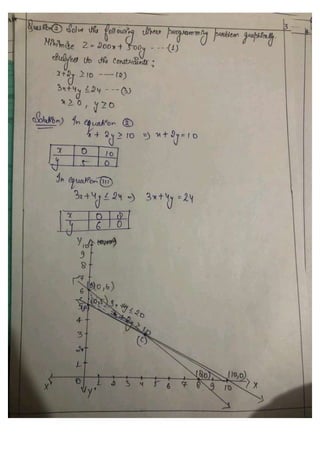 Question ② Solve the following linear programming problem graphically.
Minimise Z = 200x + 500y ---- (1)
subject to the constraints:
x+2y ≥ 10 ---- (2)
3x+4y ≤ 24 --- (3)
x ≥ 0, y ≥ 0
Solution) In equation (II)
x + 2y ≥ 10 => x + 2y = 10
x 0 10
y 5 0
In equation (III)
3x+4y ≤ 24 => 3x+4y = 24
x 0 8
y 6 0
Y 10
9
8
7
6 (0,6)
5 (0,5)
4
3
2
1
X' 0 1 2 3 4 5 6 7 8 9 10 X
(8,0) (10,0)
Y'